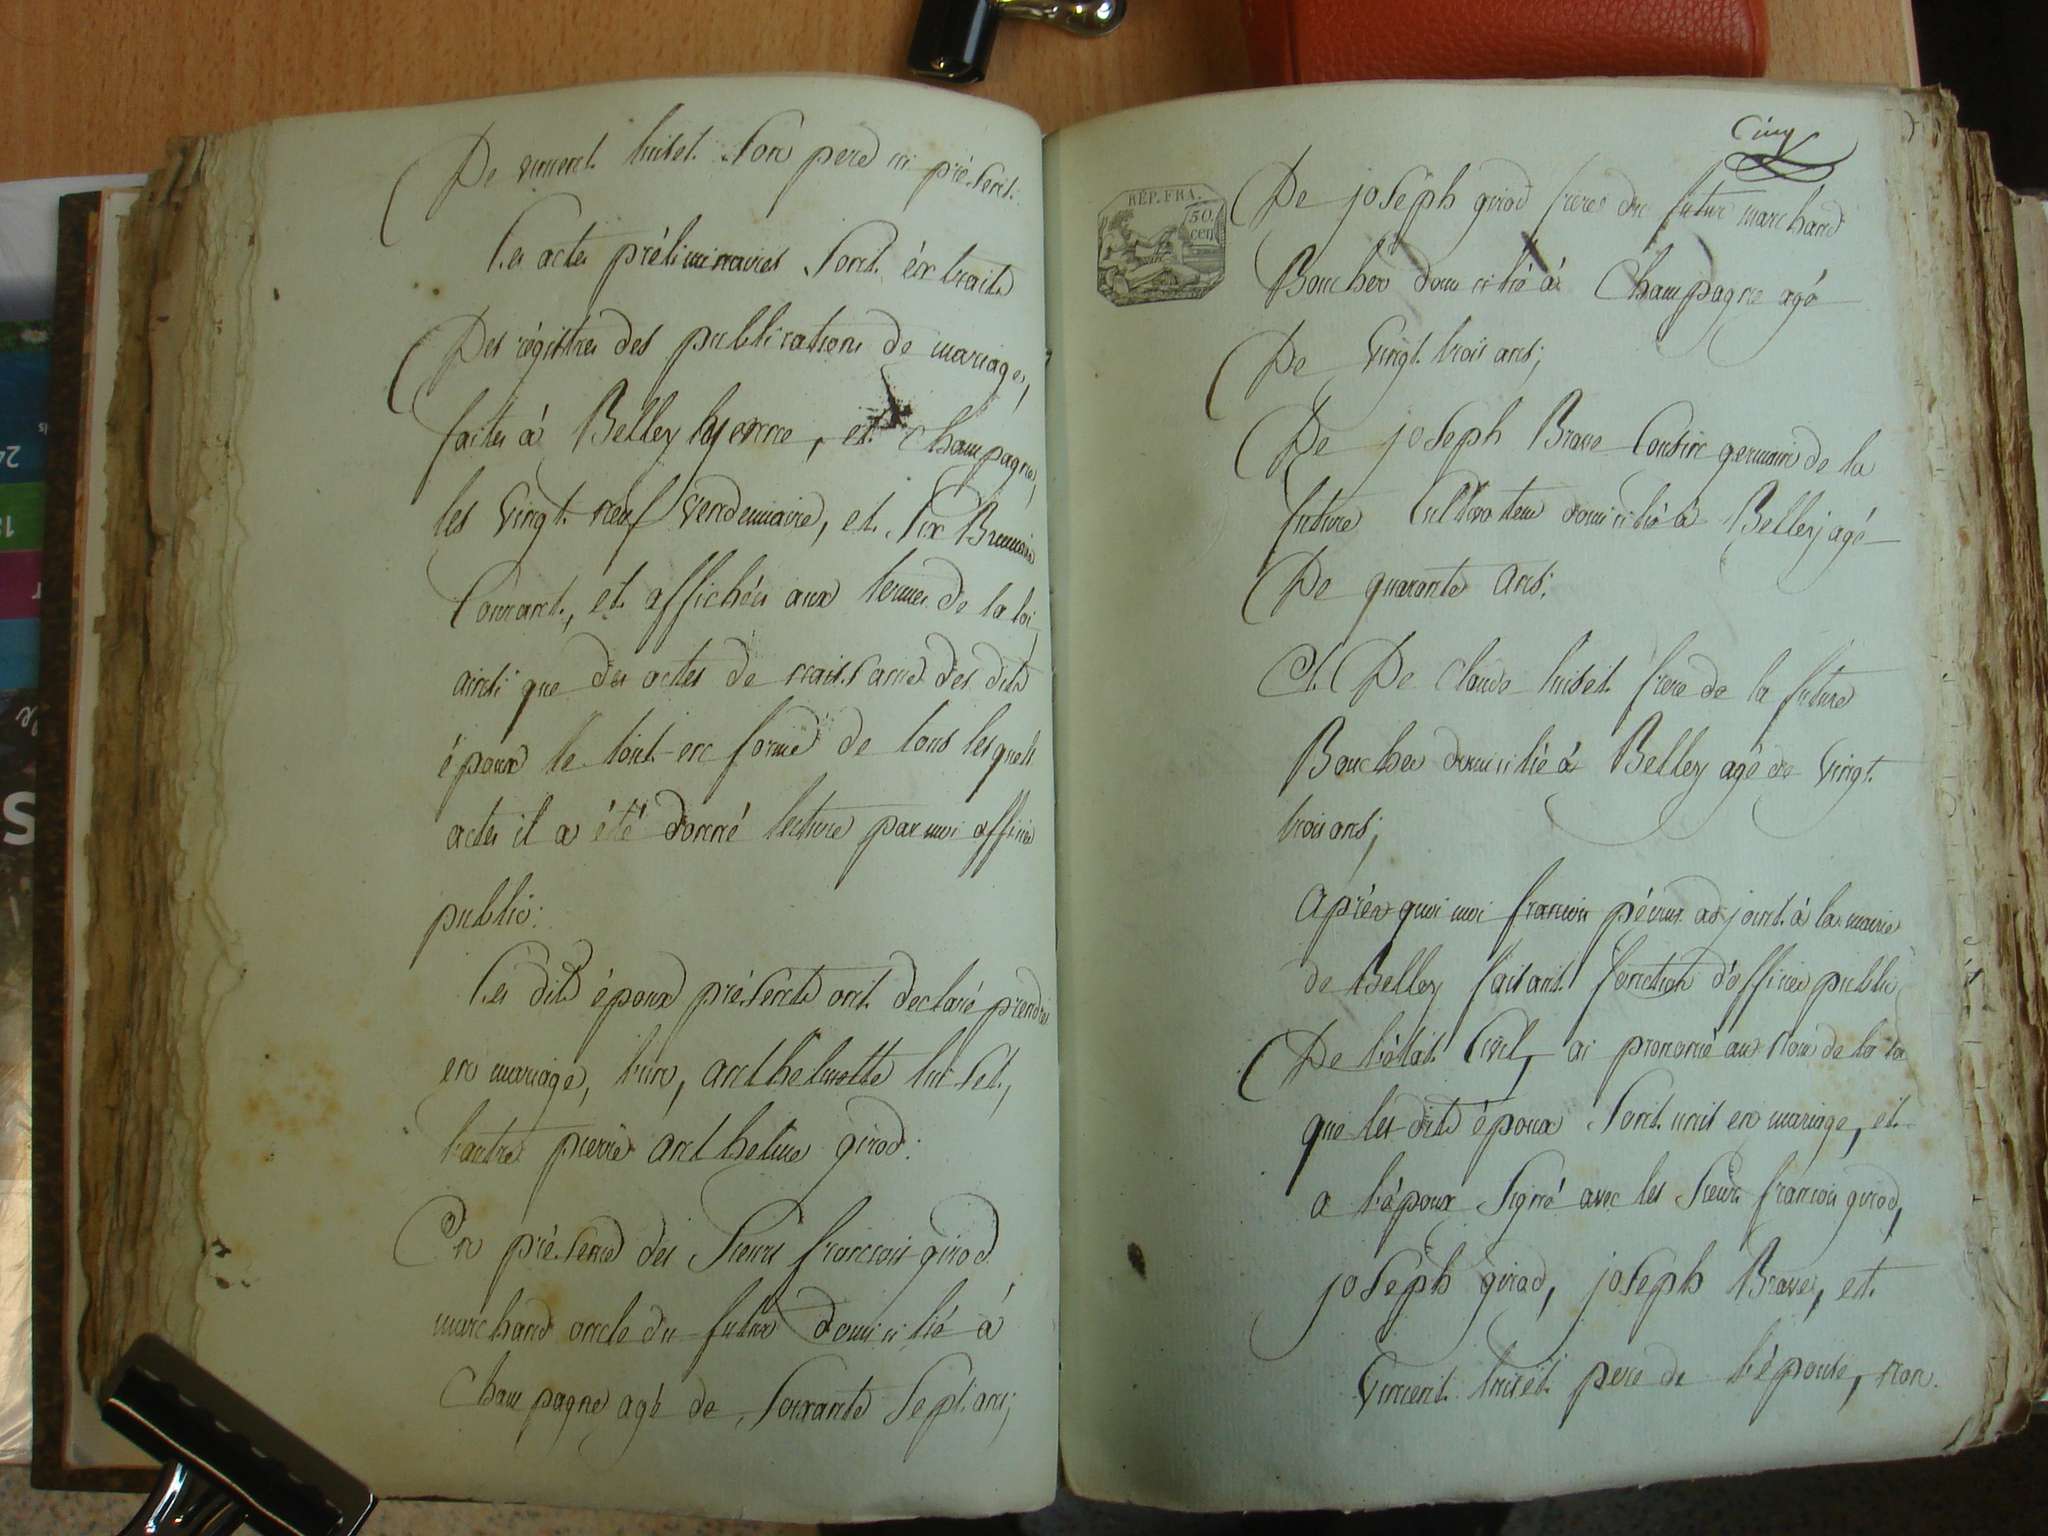 De vincent luiset Son pere ci présent.
Les actes préliminaires Sont éxtraits
Des régistres des publications de mariages,
faites à Belley, et Champagne,
les vingt neuf vendemiaire, et Six Brumaire
Courant, et affichées aux termes de la loi
ainsi que des actes de naissance des dits
époux le tout en forme de tous lesquels
actes il a été donné lecture par moi officier
public:
Les dits époux présents ont declaré prendre
en mariage, l'un, anthelmette luiset,
l'autre pierre anthelme girod:
En présence des Sieurs francois girod
marchand oncle du futur domicilié à
Champagne agé de Soixante Sept ans;
Cinq
RÉP. FRA.
50
cen
De joseph girod frere du futur marchand
Boucher domicilié à Champagne agé
De vingt trois ans;
De joseph Brave Cousin germain de la
future Cultivateur domicilié à Belley agé
De quarante ans;
Et De claude luiset frere de la future
Boucher domicilié à Belley agé de vingt
trois ans;
Après quoi moi francois adjoint à la mairie
de Belley faisant fonction d'officier public
De l'état Civil, ai prononcé au Nom de la loi
que les dits époux Sont unis en mariage, et
a l'époux Signé avec les Sieurs francois girod,
joseph girod, joseph Brave, et
Vincent luiset pere de l'épouse, non